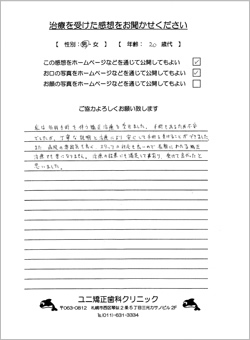 治療を受けた感想をお聞かせください
【 性別：男・女 】 【 年齢： 20 歳代 】
この感想をホームページなどを通じて公開してもよい ☑
お口の写真をホームページなどを通じて公開してもよい ☑
お顔の写真をホームページなどを通じて公開してもよい □
ご協力よろしくお願い致します
私は外科手術を伴う矯正治療を受けました。手術もあるため不安
でしたが、丁寧な説明と治療により安心して手術を受けることができました。
また 病院の雰囲気も良く、スタッフの対応も良いので 長期にわたる矯正
治療でも苦になりません。治療の結果にも満足しており、受けて良かったと
思いました。
ユニ矯正歯科クリニック
〒063-0812 札幌市西区琴似2条5丁目三光カサノビル2F
Tel.(011)-631-3334